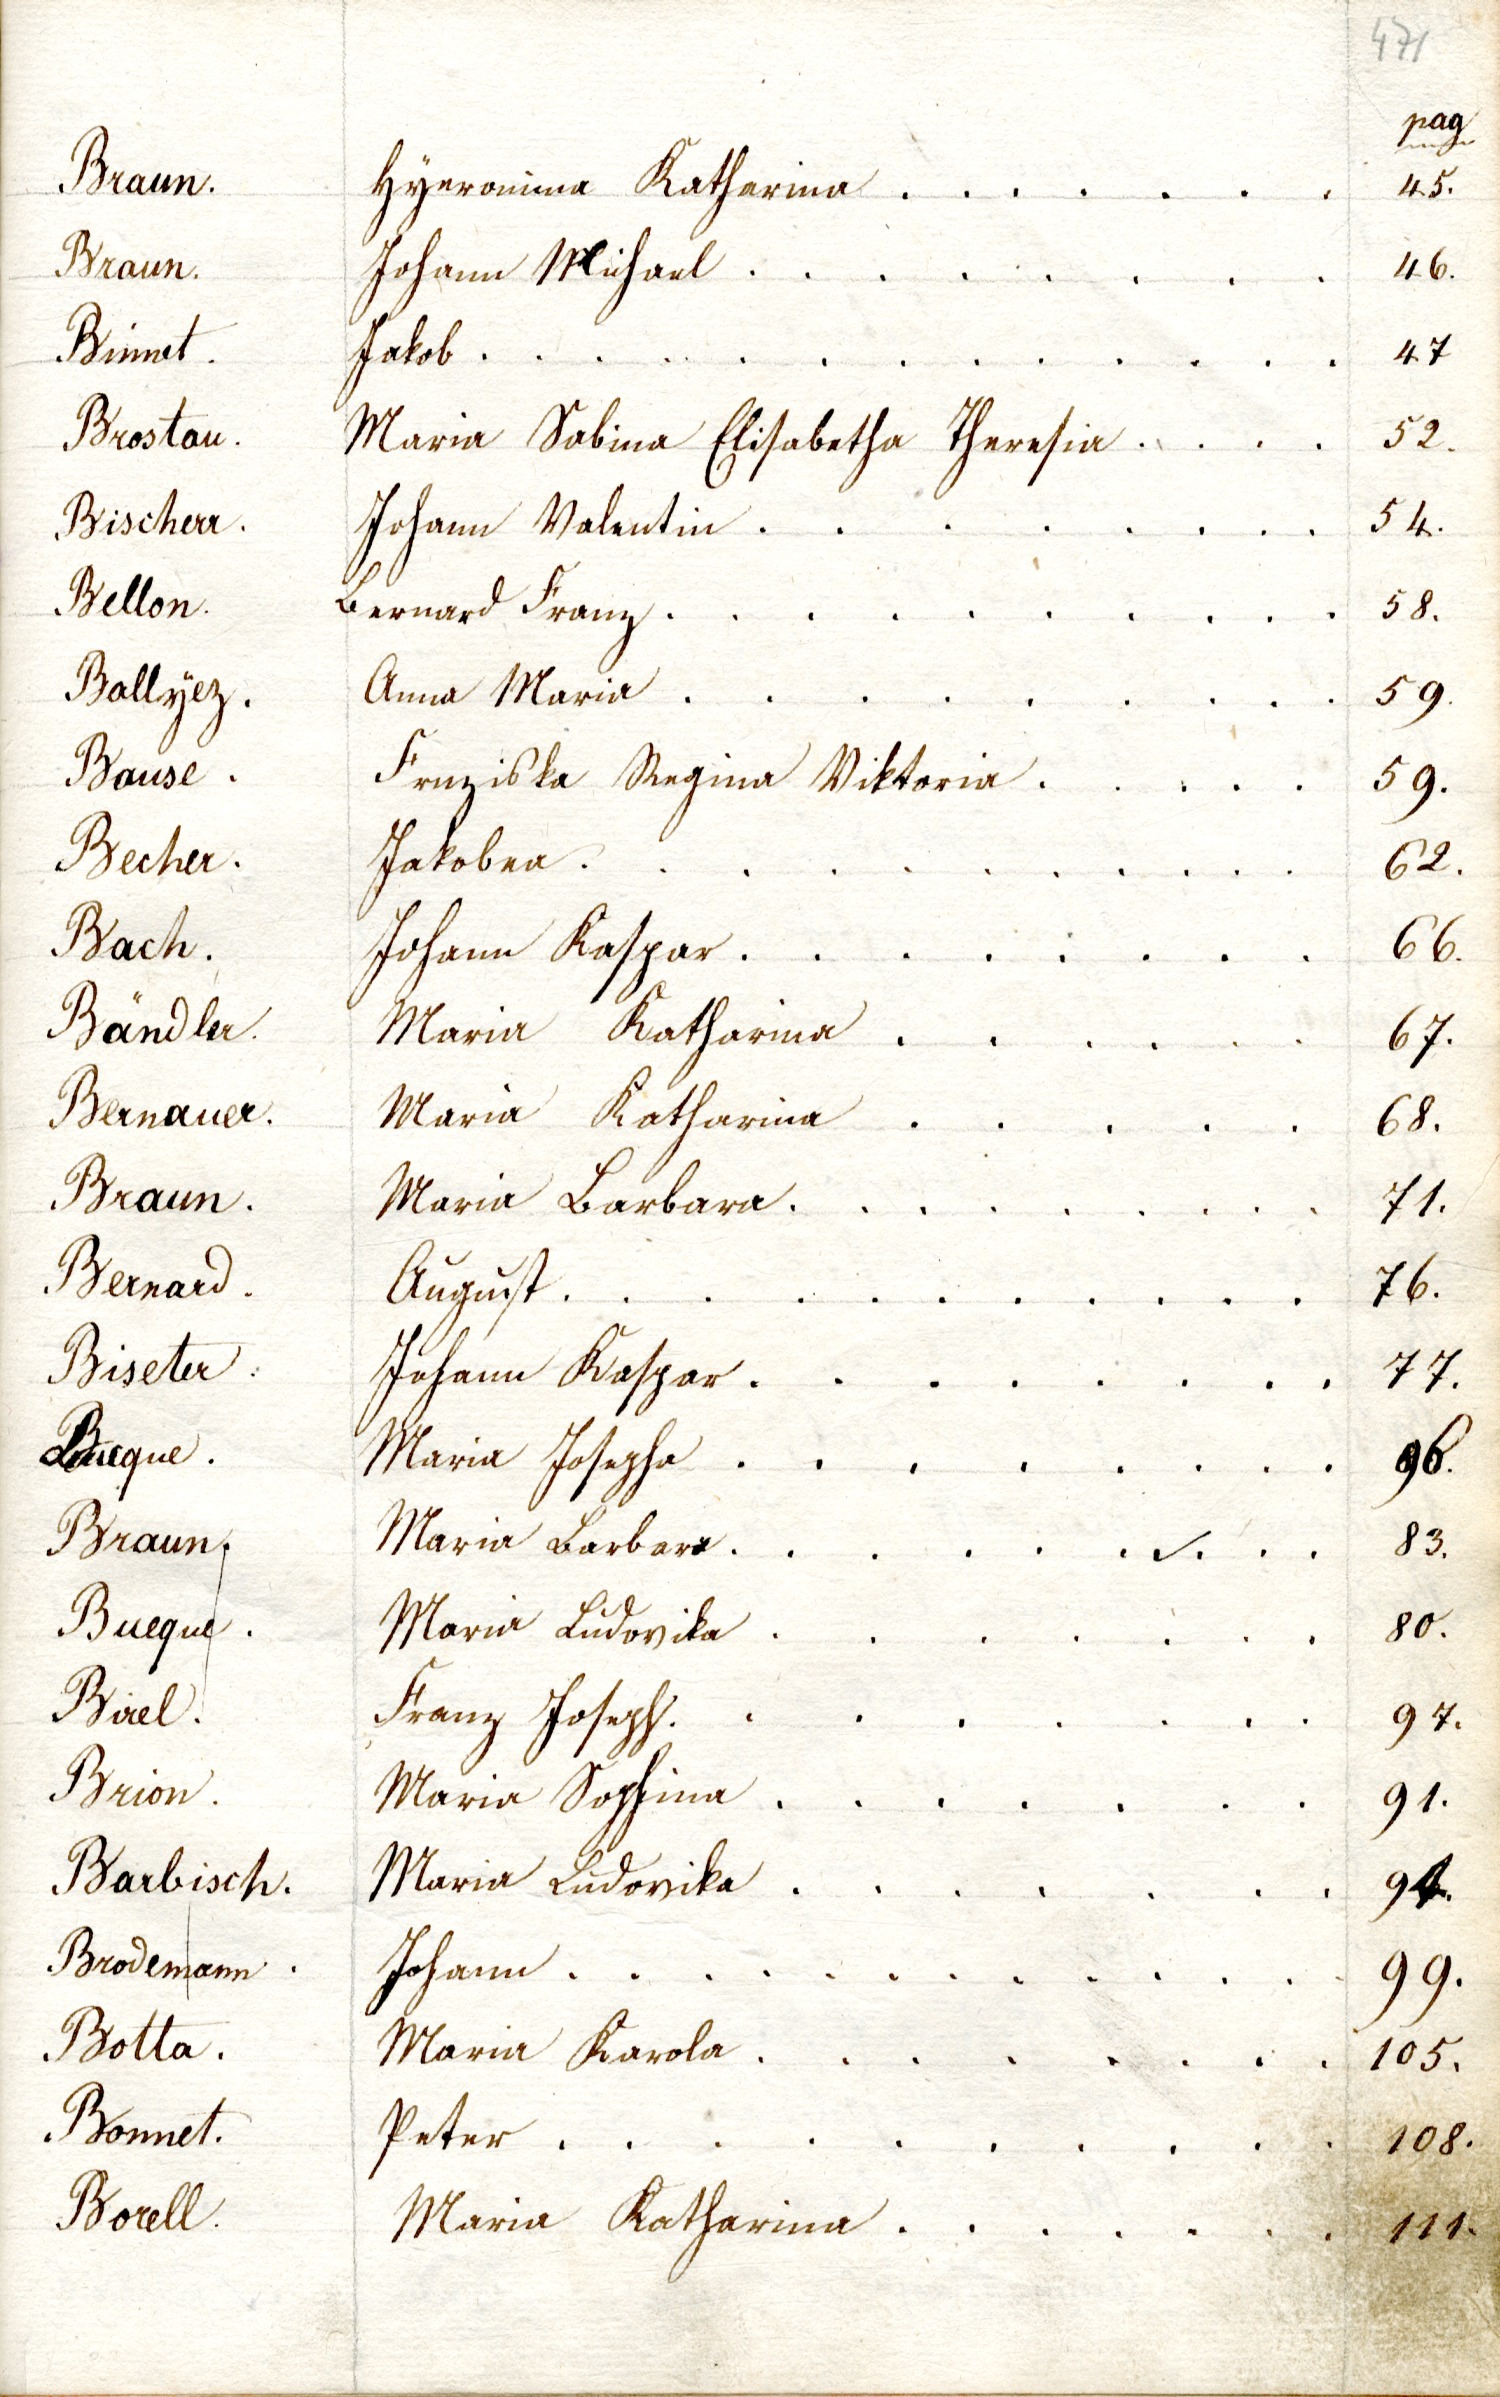 471
pag
Braun. Hÿeronima Katharina . . . . . . . 45.
Braun. Johann Michael . . . . . . . . 46.
Binnet. Jakob . . . . . . . . . . . . 47
Brostau. Maria Sabina Elisabetha Theresia . . . . 52.
Bischerr. Johann Valentin . . . . . . . . 54.
Bellon. Bernard Franz . . . . . . . . . 58.
Ballÿez. Anna Maria . . . . . . . . . 59.
Bause. Frnziska Regina Viktoria . . . . . 59.
Becher. Jakobea . . . . . . . . . . 62.
Bach. Johann Kaspar . . . . . . . . 66.
Bändler. Maria Katharina . . . . . . 67.
Bernauer. Maria Katharina . . . . . 68.
Braun. Maria Barbara . . . . . . . . 71.
Bernard. August . . . . . . . . . . . 76.
Biseter. Johann Kaspar . . . . . . . . 77.
Bueque. Maria Josepha . . . . . . . . 96.
Braun. Maria Barbara . . . . . . . . 83.
Bueque. Maria Ludovika . . . . . . . 80.
Birel. Franz Joseph . . . . . . . . 97.
Brion. Maria Sophina . . . . . . . 91.
Barbisch. Maria Ludovika . . . . . . . 94.
Brodemann. Johann . . . . . . . . . . . . 99.
Botta. Maria Karola . . . . . . . . 105.
Bonnet. Peter . . . . . . . . . . 108.
Borell. Maria Katharina . . . . . . . 111.